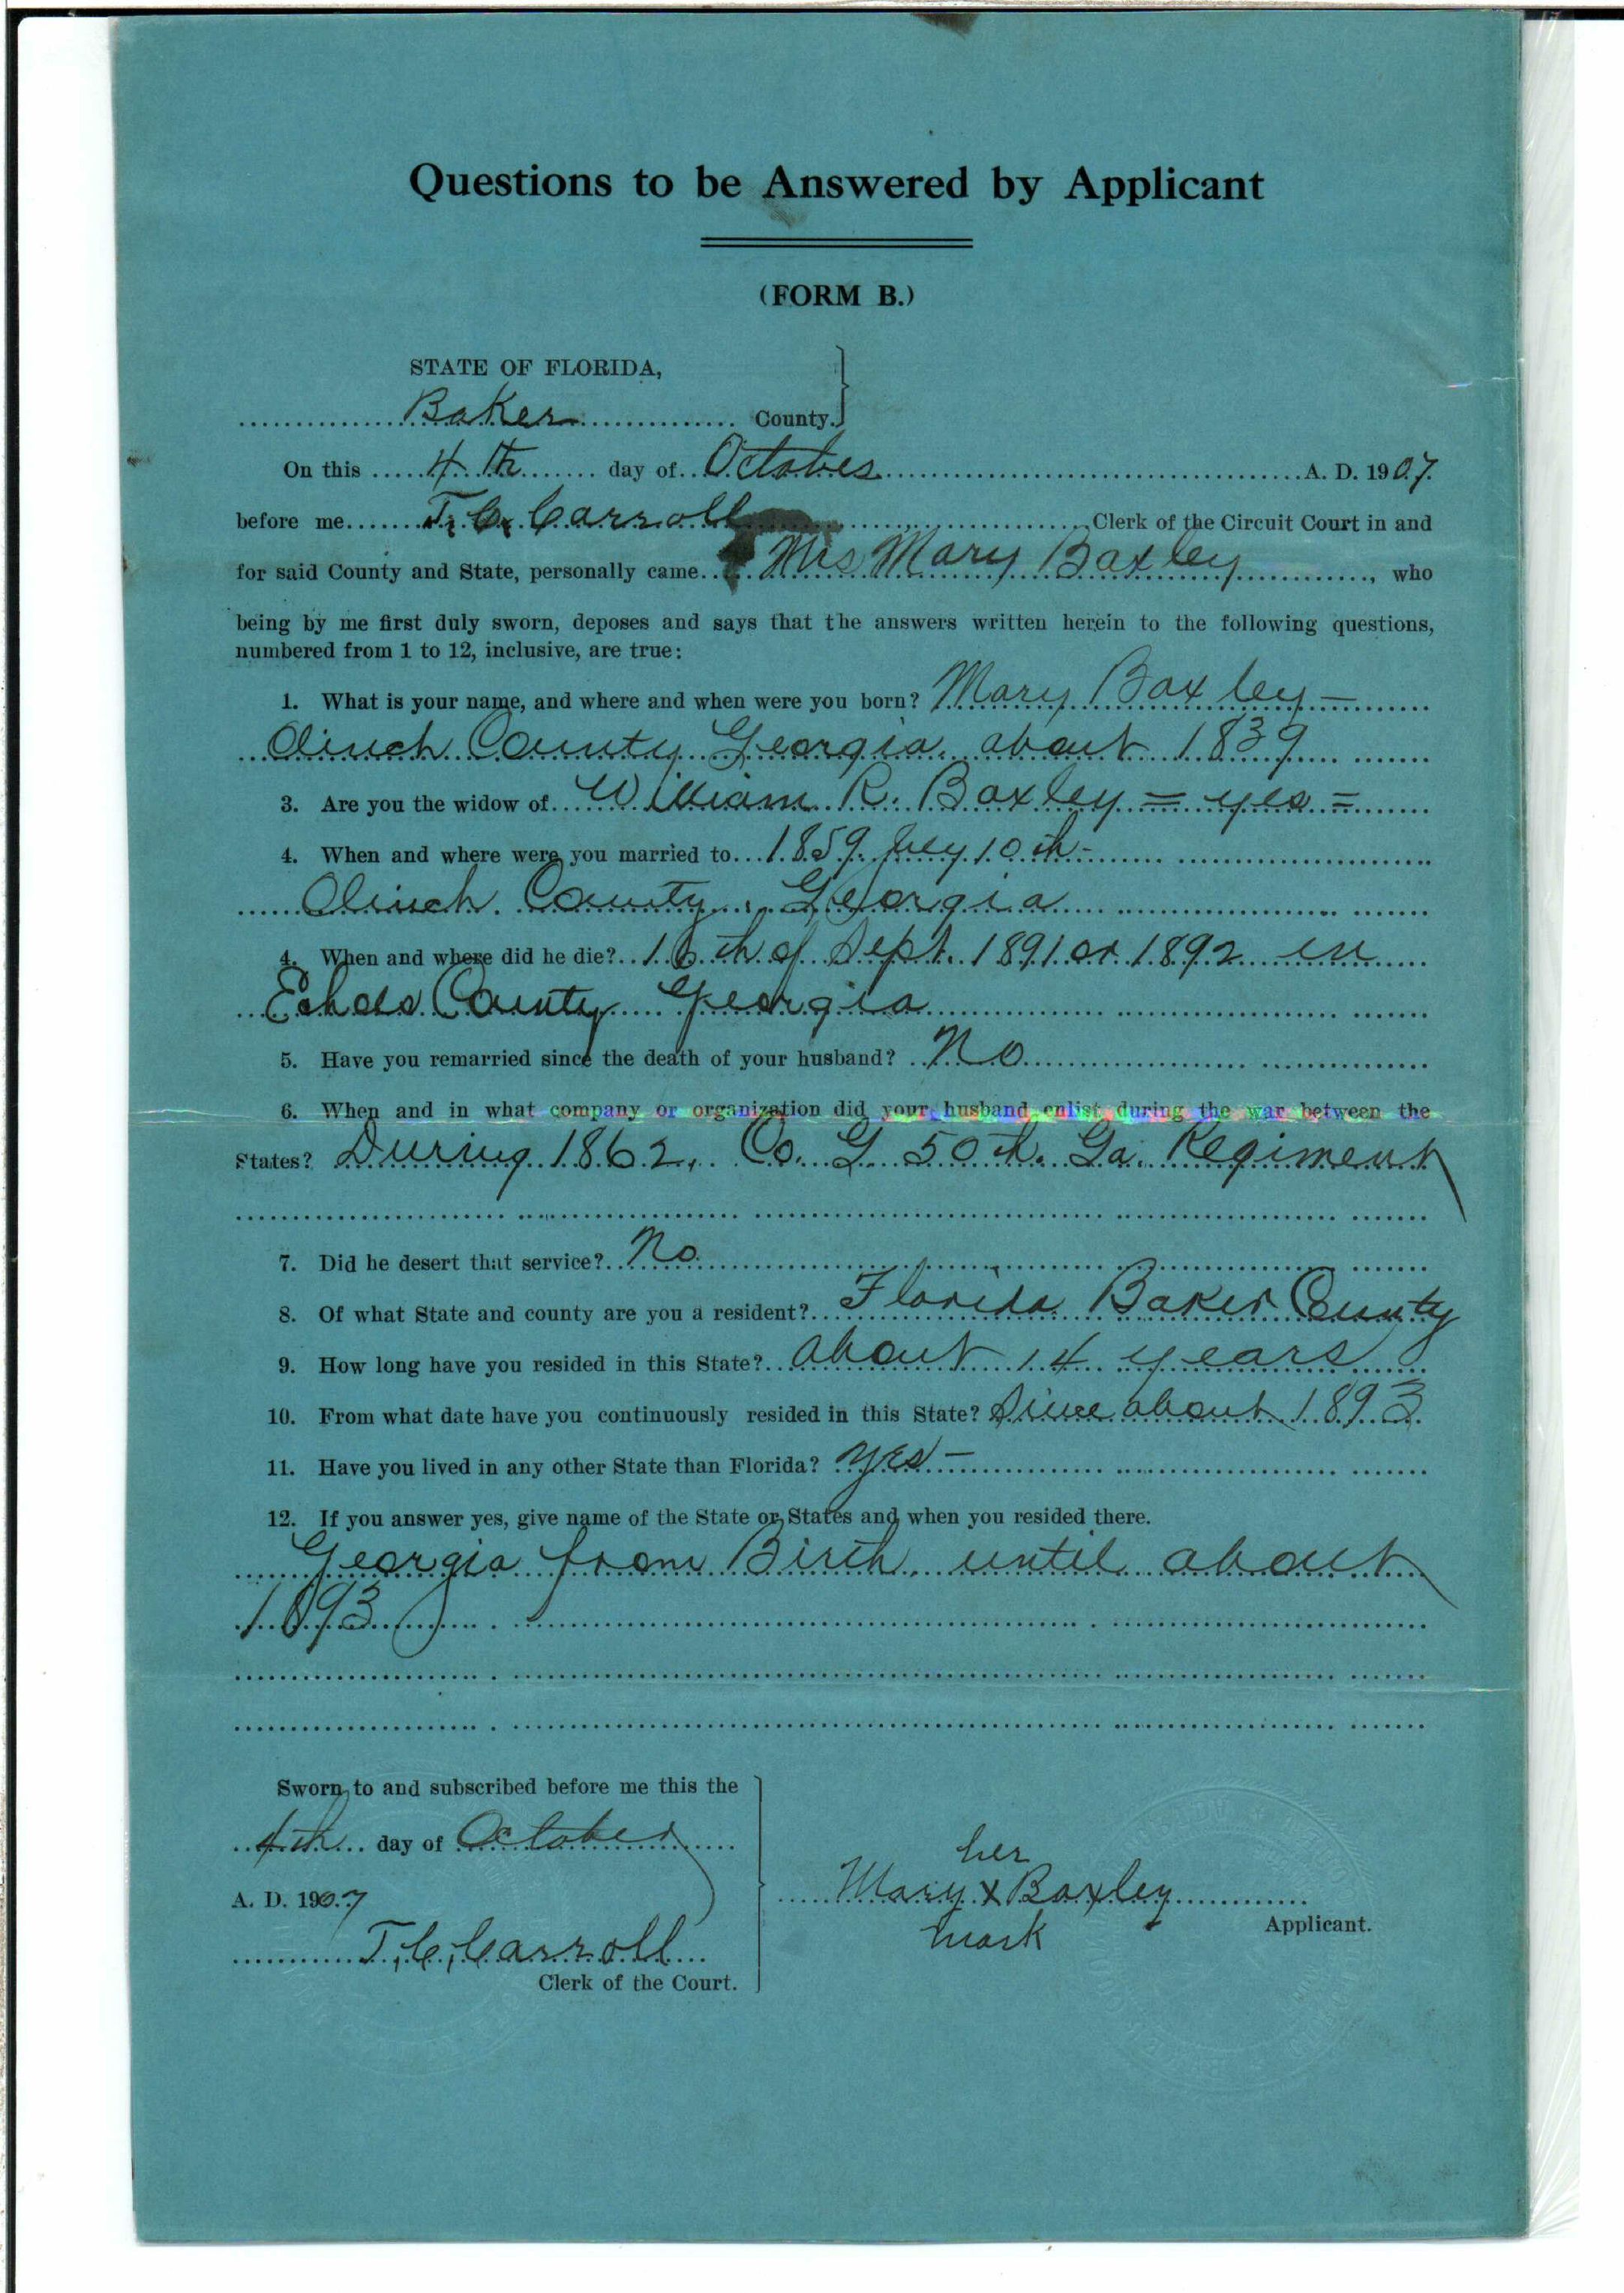 Questions to be Answered by Applicant
(FORM B.)
STATE OF FLORIDA,
Baker County.
On this 4th day of October A. D. 1907.
before me T. C. Carroll Clerk of the Circuit Court in and
for said County and State, personally came Mrs Mary Baxley, who
being by me first duly sworn, deposes and says that the answers written herein to the following questions,
numbered from 1 to 12, inclusive, are true:
1. What is your name, and where and when were you born? Mary Baxley—
Clinch County Georgia. about 1839
3. Are you the widow of William R. Baxley = yes =
4. When and where were you married to 1859 10th-
Clinch County, Georgia
4. When and where did he die? 16th of Sept. 1891 or 1892 in
Echols County Georgia
5. Have you remarried since the death of your husband? No
6. When and in what company or organization did your husband enlist during the war between the
States? During 1862, Co. G 50th. Ga. Regiment
7. Did he desert that service? No.
8. Of what State and county are you a resident? Florida Baker County
9. How long have you resided in this State? about 14 years
10. From what date have you continuously resided in this State? Since about 1893
11. Have you lived in any other State than Florida? Yes—
12. If you answer yes, give name of the State or States and when you resided there.
Georgia from Birth, until about
1893
Sworn to and subscribed before me this the
4th day of October
A. D. 1907
T. C. Carroll
Clerk of the Court.
her
Mary x Baxley
mark
Applicant.